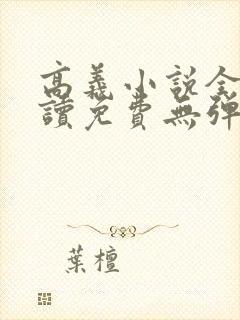 高義小說全
讀免費無彈
葉檀